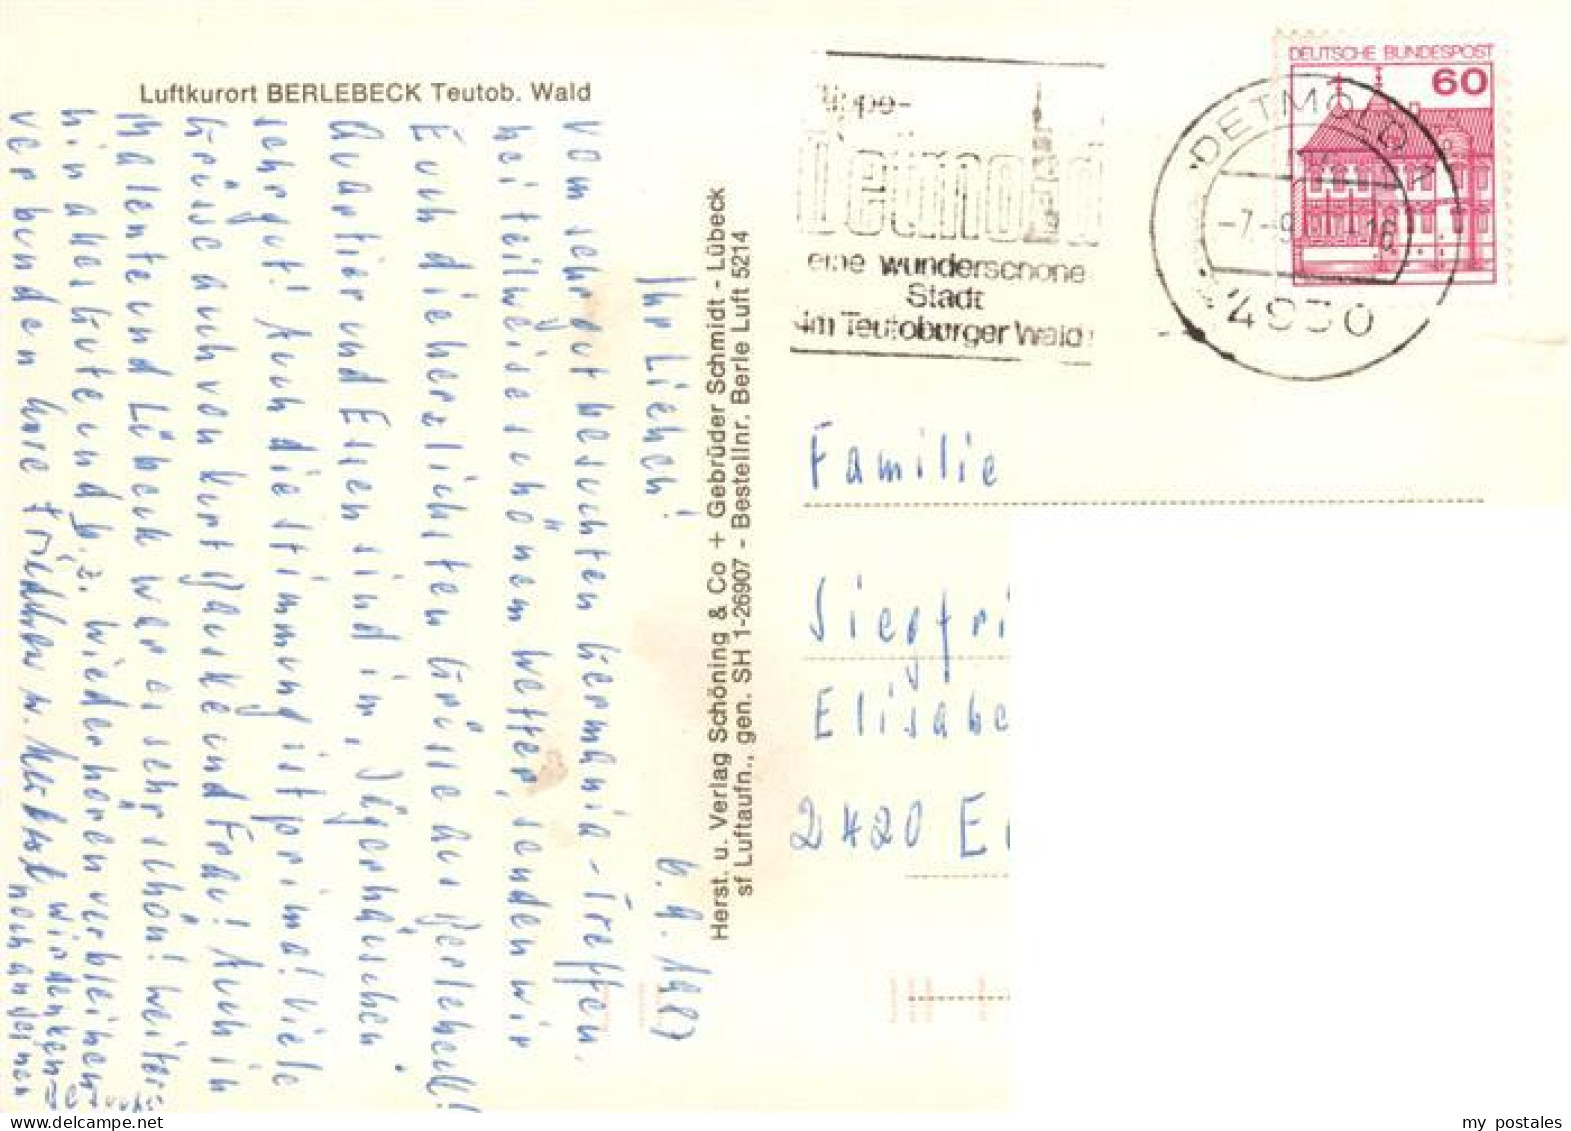 Luftkurort BERLEBECK Teutob. Wald
6. 9. 1987
Ihr Lieben!
Vom sehr gut besuchten Germania-Treffen,
bei teilweise schönem Wetter, senden wir
Euch die herzlichsten Grüsse aus Berlebeck!
Quartier und Essen sind im "Jägerhäuschen"
sehr gut! Auch die Stimmung ist prima! Viele
Grüsse auch von Kurt und Frau! Auch in
Malente und Lübeck war es sehr schön! Weiter-
hin alles Gute und b. z. Wiederhören verbleiben
verbunden
wir denken
noch an
Herst. u. Verlag Schöning & Co + Gebrüder Schmidt - Lübeck
sf Luftaufn., gen. SH 1-26907 - Bestellnr. Berle Luft 5214
Detmold
eine wunderschöne
Stadt
im Teutoburger Wald
DEUTSCHE BUNDESPOST
60
DETMOLD 1
4930
Familie
Siegfri
Elisabe
2420 E
my postales